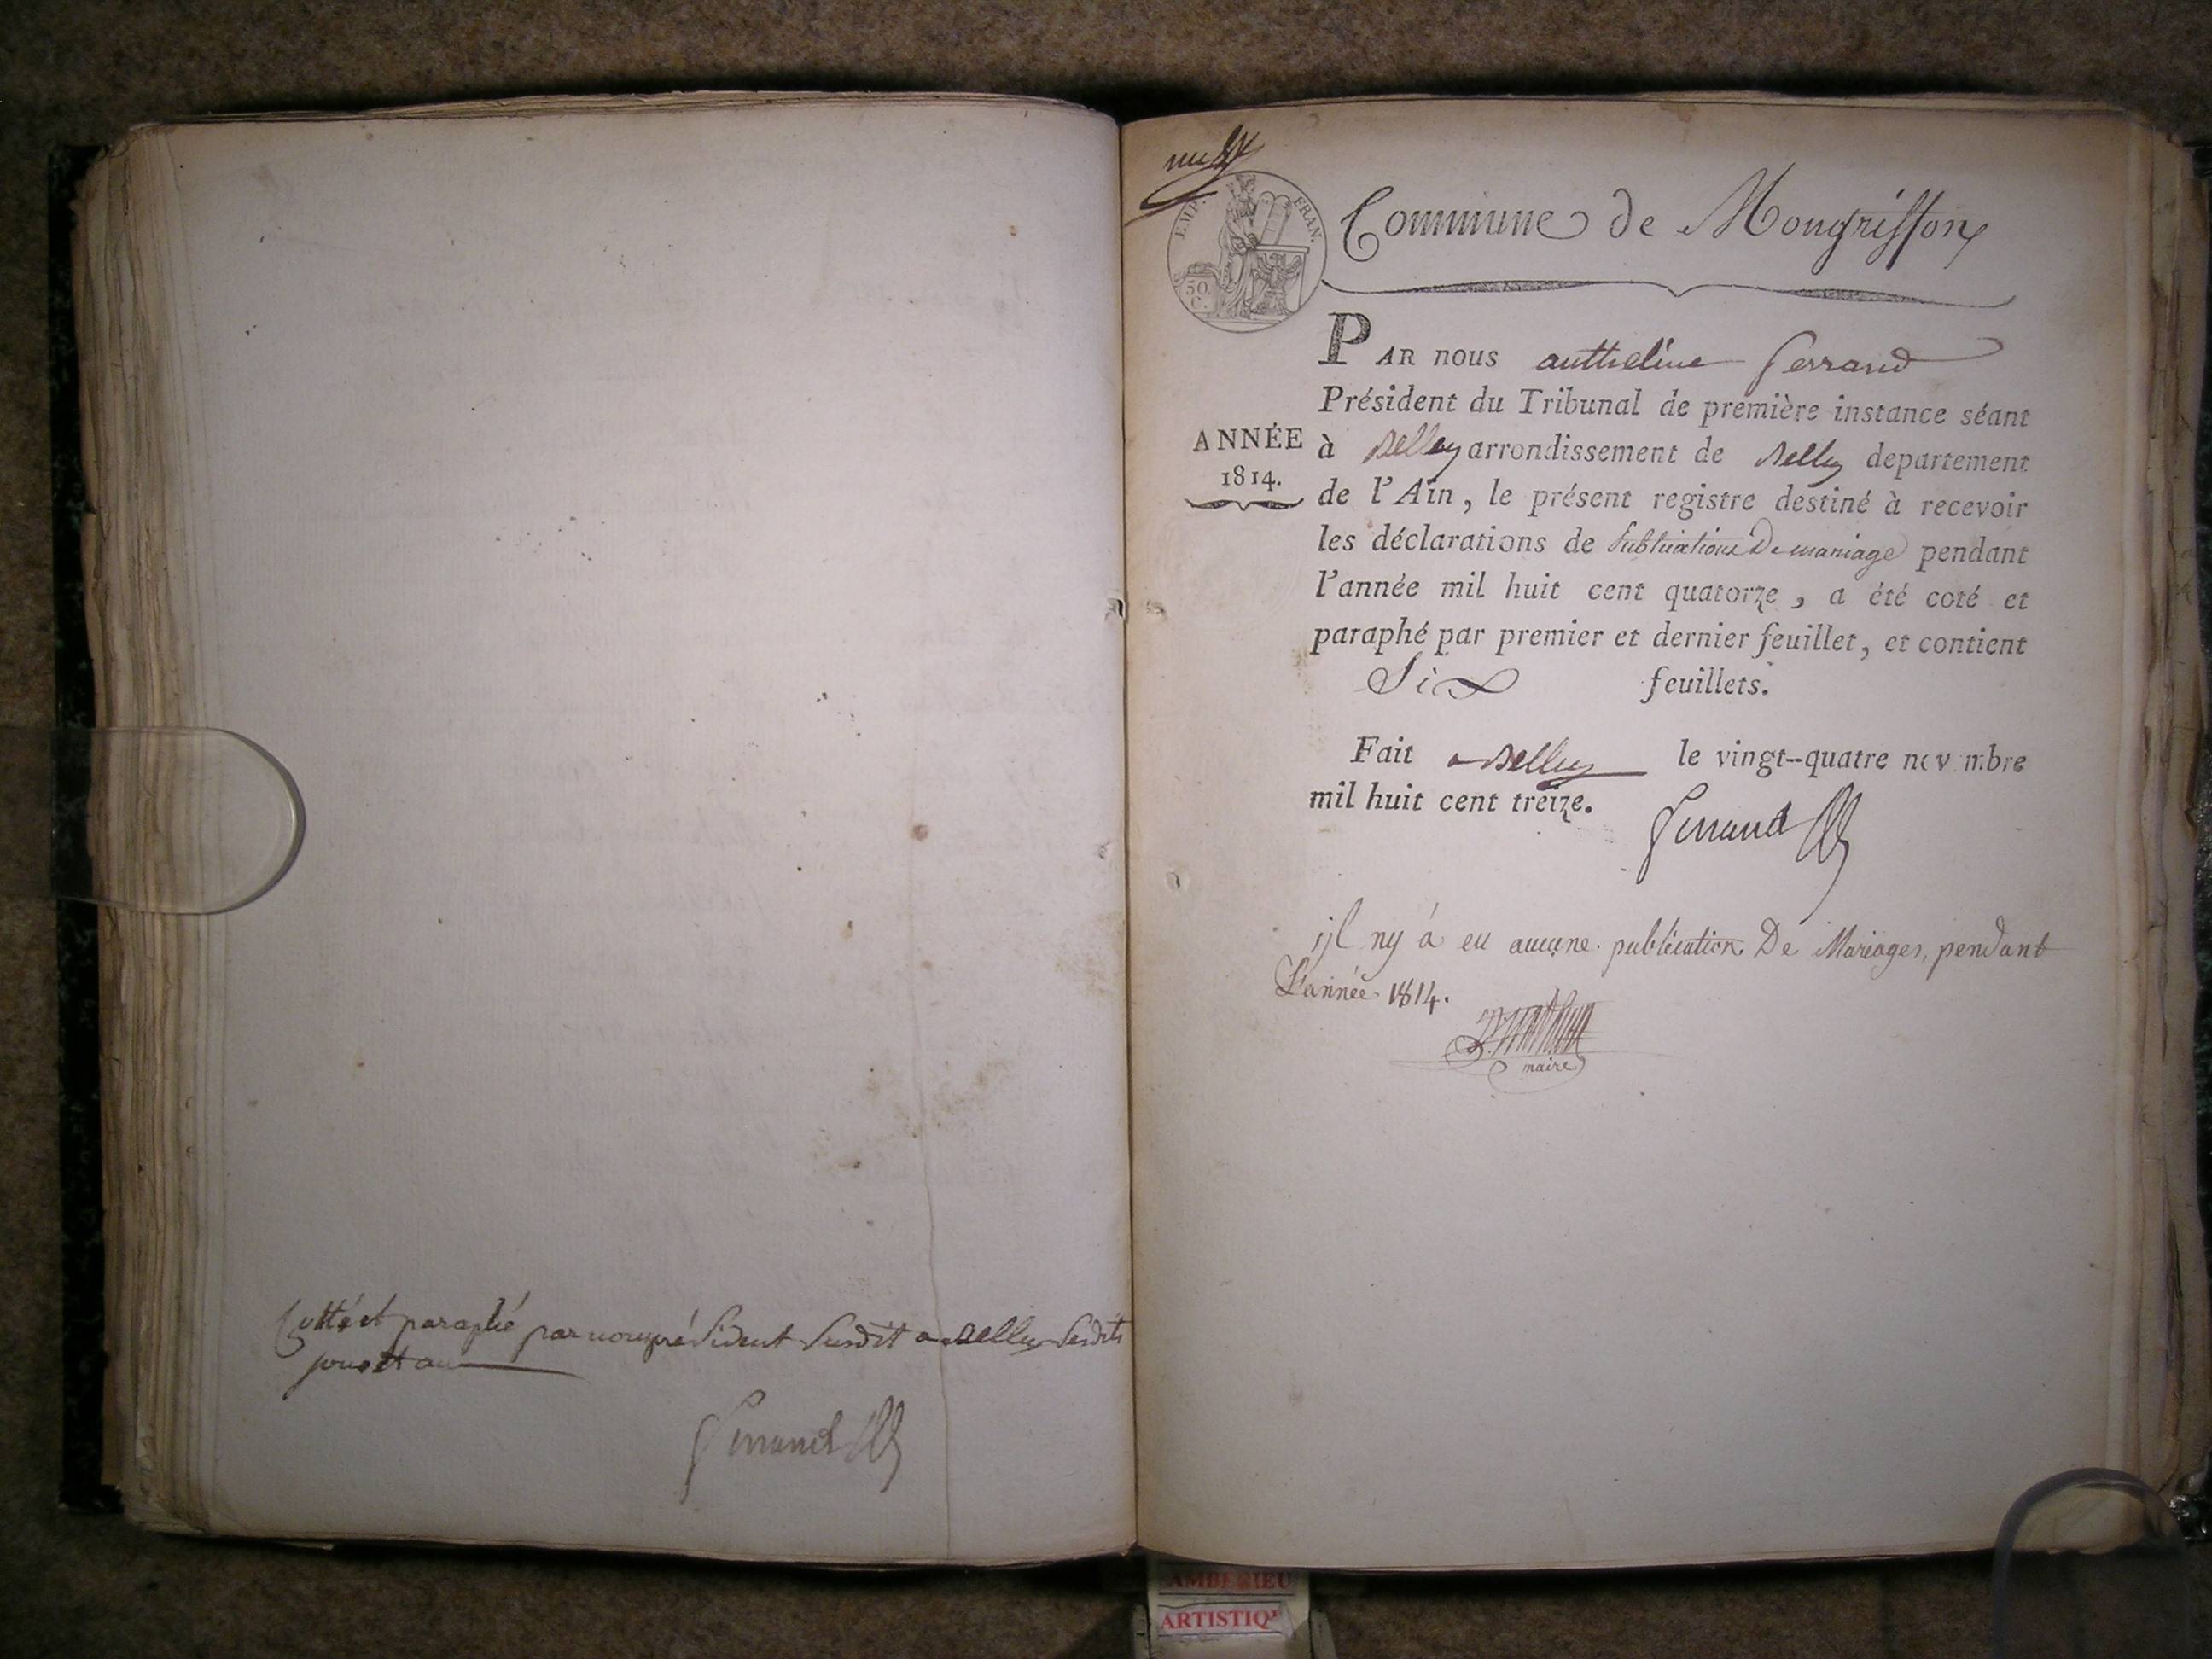 Cotté et paraphé par nous président susdit a Belley lesdits
jour et an
Ferrand
EMP. FRAN.
50
C.
Commune de Mongriffon
PAR nous anthelme ferrand
Président du Tribunal de première instance séant
ANNÉE
1814.
à Belley arrondissement de Belley departement
de l'Ain, le présent registre destiné à recevoir
les déclarations de publications De mariage pendant
l'année mil huit cent quatorze, a été coté et
paraphé par premier et dernier feuillet, et contient
Six feuillets.
Fait a Belley le vingt-quatre novembre
mil huit cent treize.
Ferrand
ijl ny á eu aucune publication De Mariages, pendant
L'année 1814.
maire
AMBERIEU
ARTISTIQ'